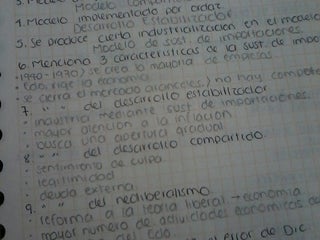 3. Menci Modelo compartido
4. Modelo implementado por ordaz.
Desarrollo Estabilizador
5. Se produce cierta industrialización en el modelo
Modelo de sust. de importaciones.
6. Menciona 3 características de la sust. de impo
1940-1970) se creo la mayoría de empresas
edo. rige la economía.
se cierra el mercado aranceles) no hay compete
7. " " del desarrollo estabilizador
industria mediante sust. de importaciones.
mayor atención a la inflación
busca una apertura gradual
8. " " del desarrollo compartido.
sentimiento de culpa.
legitimidad
deuda externa.
9. " " del neoliberalismo.
reforma a la teoría liberal → economía
mayor numero de actividades económicas de
del Edo.
error de Dic